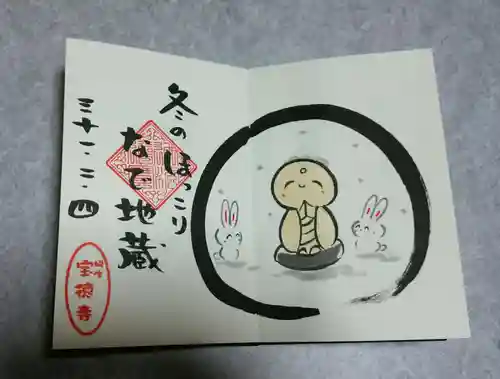 冬のほっこり
なで地蔵
三十一.二.四
宝徳寺